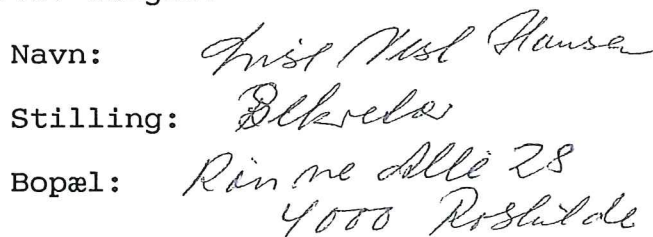 Navn: Hansen
Stilling: Sekretær
Bopæl: Rønne Allé 28
4000 Roskilde